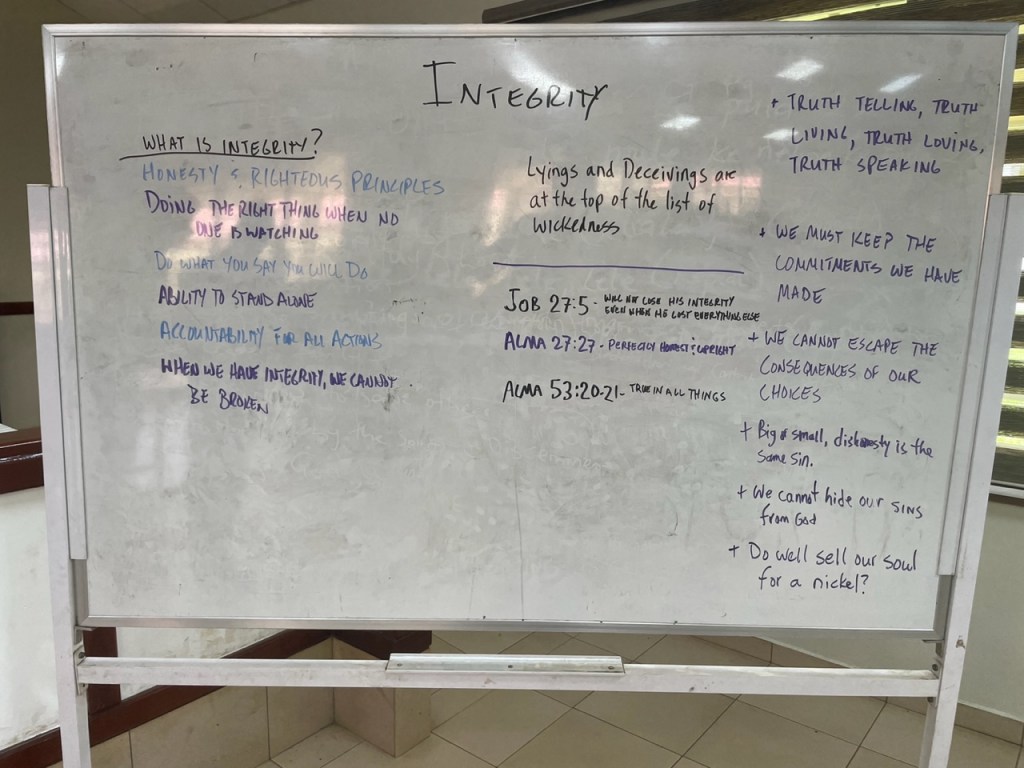 INTEGRITY
WHAT IS INTEGRITY?
HONESTY & RIGHTEOUS PRINCIPLES
DOING THE RIGHT THING WHEN NO
ONE IS WATCHING
DO WHAT YOU SAY YOU WILL DO
ABILITY TO STAND ALONE
ACCOUNTABILITY FOR ALL ACTIONS
WHEN WE HAVE INTEGRITY, WE CANNOT
BE BROKEN
Lyings and Deceivings are
at the top of the list of
wickedness
JOB 27:5 - WILL NOT LOSE HIS INTEGRITY
EVEN WHEN HE LOST EVERYTHING ELSE
ALMA 27:27 - PERFECTLY HONEST & UPRIGHT
ALMA 53:20-21 - TRUE IN ALL THINGS
+ TRUTH TELLING, TRUTH
LIVING, TRUTH LOVING,
TRUTH SPEAKING
+ WE MUST KEEP THE
COMMITMENTS WE HAVE
MADE
+ WE CANNOT ESCAPE THE
CONSEQUENCES OF OUR
CHOICES
+ Big or small, dishonesty is the
same sin.
+ We cannot hide our sins
from God
+ Do well sell our soul
for a nickel?